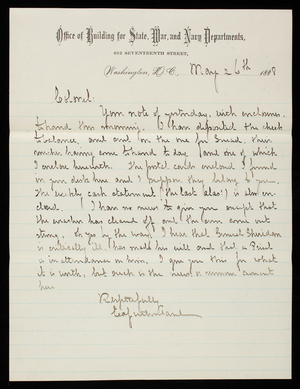 Office of Building for State, War, and Navy Departments,
602 SEVENTEENTH STREET,
Washington, D.C., May 26th 1888
Colonel:
Your note of yesterday, with enclosures
to hand this morning. I have deposited the check
to balance, and sent on the one for Snead, their
voucher having come to hand today (and one of which
I enclose herewith. The postal cards enclosed I found
in your desk here and I suppose they belong to you.
The weekly cash statement (the last also!) is also en-
closed. I have no news to give you except that
the weather has cleared off and the sun come out
strong. Oh yes by the way, I hear that General Sheridan
is critically ill, has made his will and that a Priest
is in attendance on him, I give you this for what
it is worth, but such is the news or rumor current
here
Respectfully